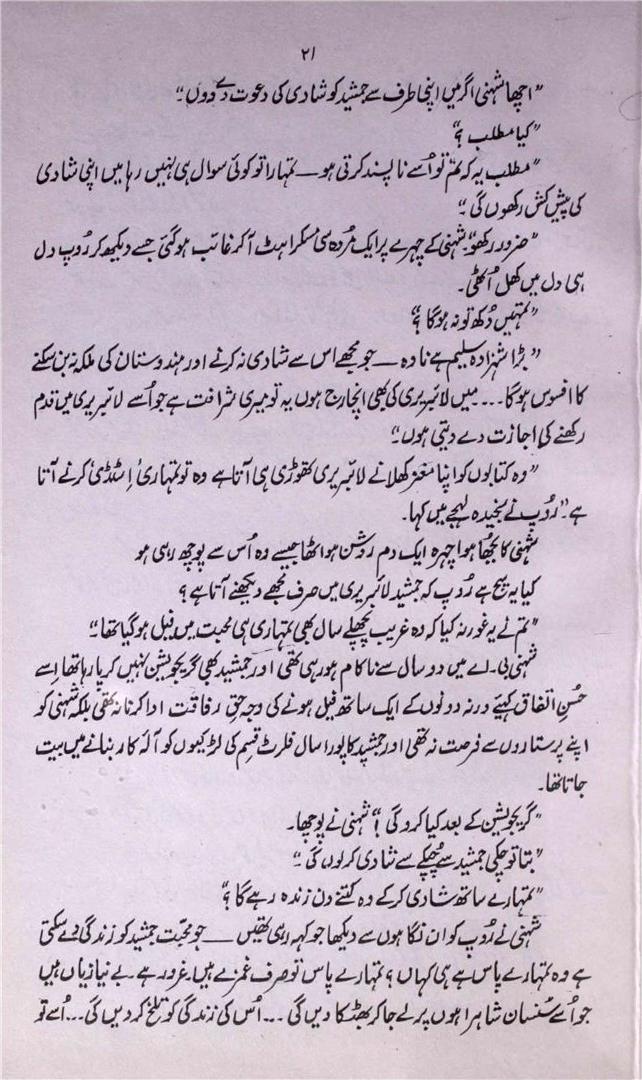 ۲۱
"اچھا شہنی اگر میں اپنی طرف سے جمشید کو شادی کی دعوت دے دوں۔"
"کیا مطلب؟"
"مطلب یہ کہ تم تو اُسے ناپسند کرتی ہو — تمہارا تو کوئی سوال ہی نہیں رہا میں اپنی شادی
کی پیش کش رکھوں گی۔"
"ضرور رکھو" شہنی کے چہرے پر ایک مُردہ سی مسکراہٹ آ کر غائب ہو گئی جسے دیکھ کر رُوپ دل
ہی دل میں کھل اُٹھی۔
"تمہیں دُکھ تو نہ ہوگا؟"
"بڑا شہزادہ سلیم ہے نا وہ — جو مجھے اس سے شادی نہ کرنے اور ہندوستان کی ملکہ نہ بن سکنے
کا افسوس ہوگا... میں لائبریری کی بھی انچارج ہوں یہ تو میری شرافت ہے جو اُسے لائبریری میں قدم
رکھنے کی اجازت دے دیتی ہوں۔"
"وہ کتابوں کو اپنا مغز کھلانے لائبریری تھوڑی ہی آتا ہے وہ تو تمہاری اِسٹڈی کرنے آتا
ہے" رُوپ نے سنجیدہ لہجے میں کہا۔
شہنی کا بجھا ہوا چہرہ ایک دم روشن ہو اٹھا جیسے وہ اُس سے پوچھ رہی ہو
کیا یہ سچ ہے رُوپ کہ جمشید لائبریری میں صرف مجھے دیکھنے آتا ہے؟
"تم نے یہ غور نہ کیا کہ وہ غریب پچھلے سال بھی تمہاری ہی محبت میں فیل ہو گیا تھا۔"
شہنی بی۔اے میں دو سال سے ناکام ہو رہی تھی اور جمشید بھی گریجویشن نہیں کر پا رہا تھا اِسے
حُسنِ اتفاق کہیئے ورنہ دونوں کے ایک ساتھ فیل ہونے کی وجہ حقِ رفاقت ادا کرنا نہ تھی بلکہ شہنی کو
اپنے پرستاروں سے فرصت نہ تھی اور جمشید کا پورا سال فلرٹ قسم کی لڑکیوں کو آلۂ کار بنانے میں بیت
جاتا تھا۔
"گریجویشن کے بعد کیا کرو گی؟" شہنی نے پوچھا۔
"بتا تو چکی جمشید سے چُپکے سے شادی کر لوں گی۔"
"تمہارے ساتھ شادی کر کے وہ کتنے دن زندہ رہے گا؟"
شہنی نے رُوپ کو ان نگاہوں سے دیکھا جو کہہ رہی تھیں — جو محبّت جمشید کو زندگی دے سکتی
ہے وہ تمہارے پاس ہے ہی کہاں؟ تمہارے پاس تو صرف غمزے ہیں۔ غرور ہے۔ بے نیازیاں ہیں
جو اُسے سُنسان شاہراہوں پر لے جا کر بھٹکا دیں گی... اُس کی زندگی کو تلخ کر دیں گی... اُسے تو